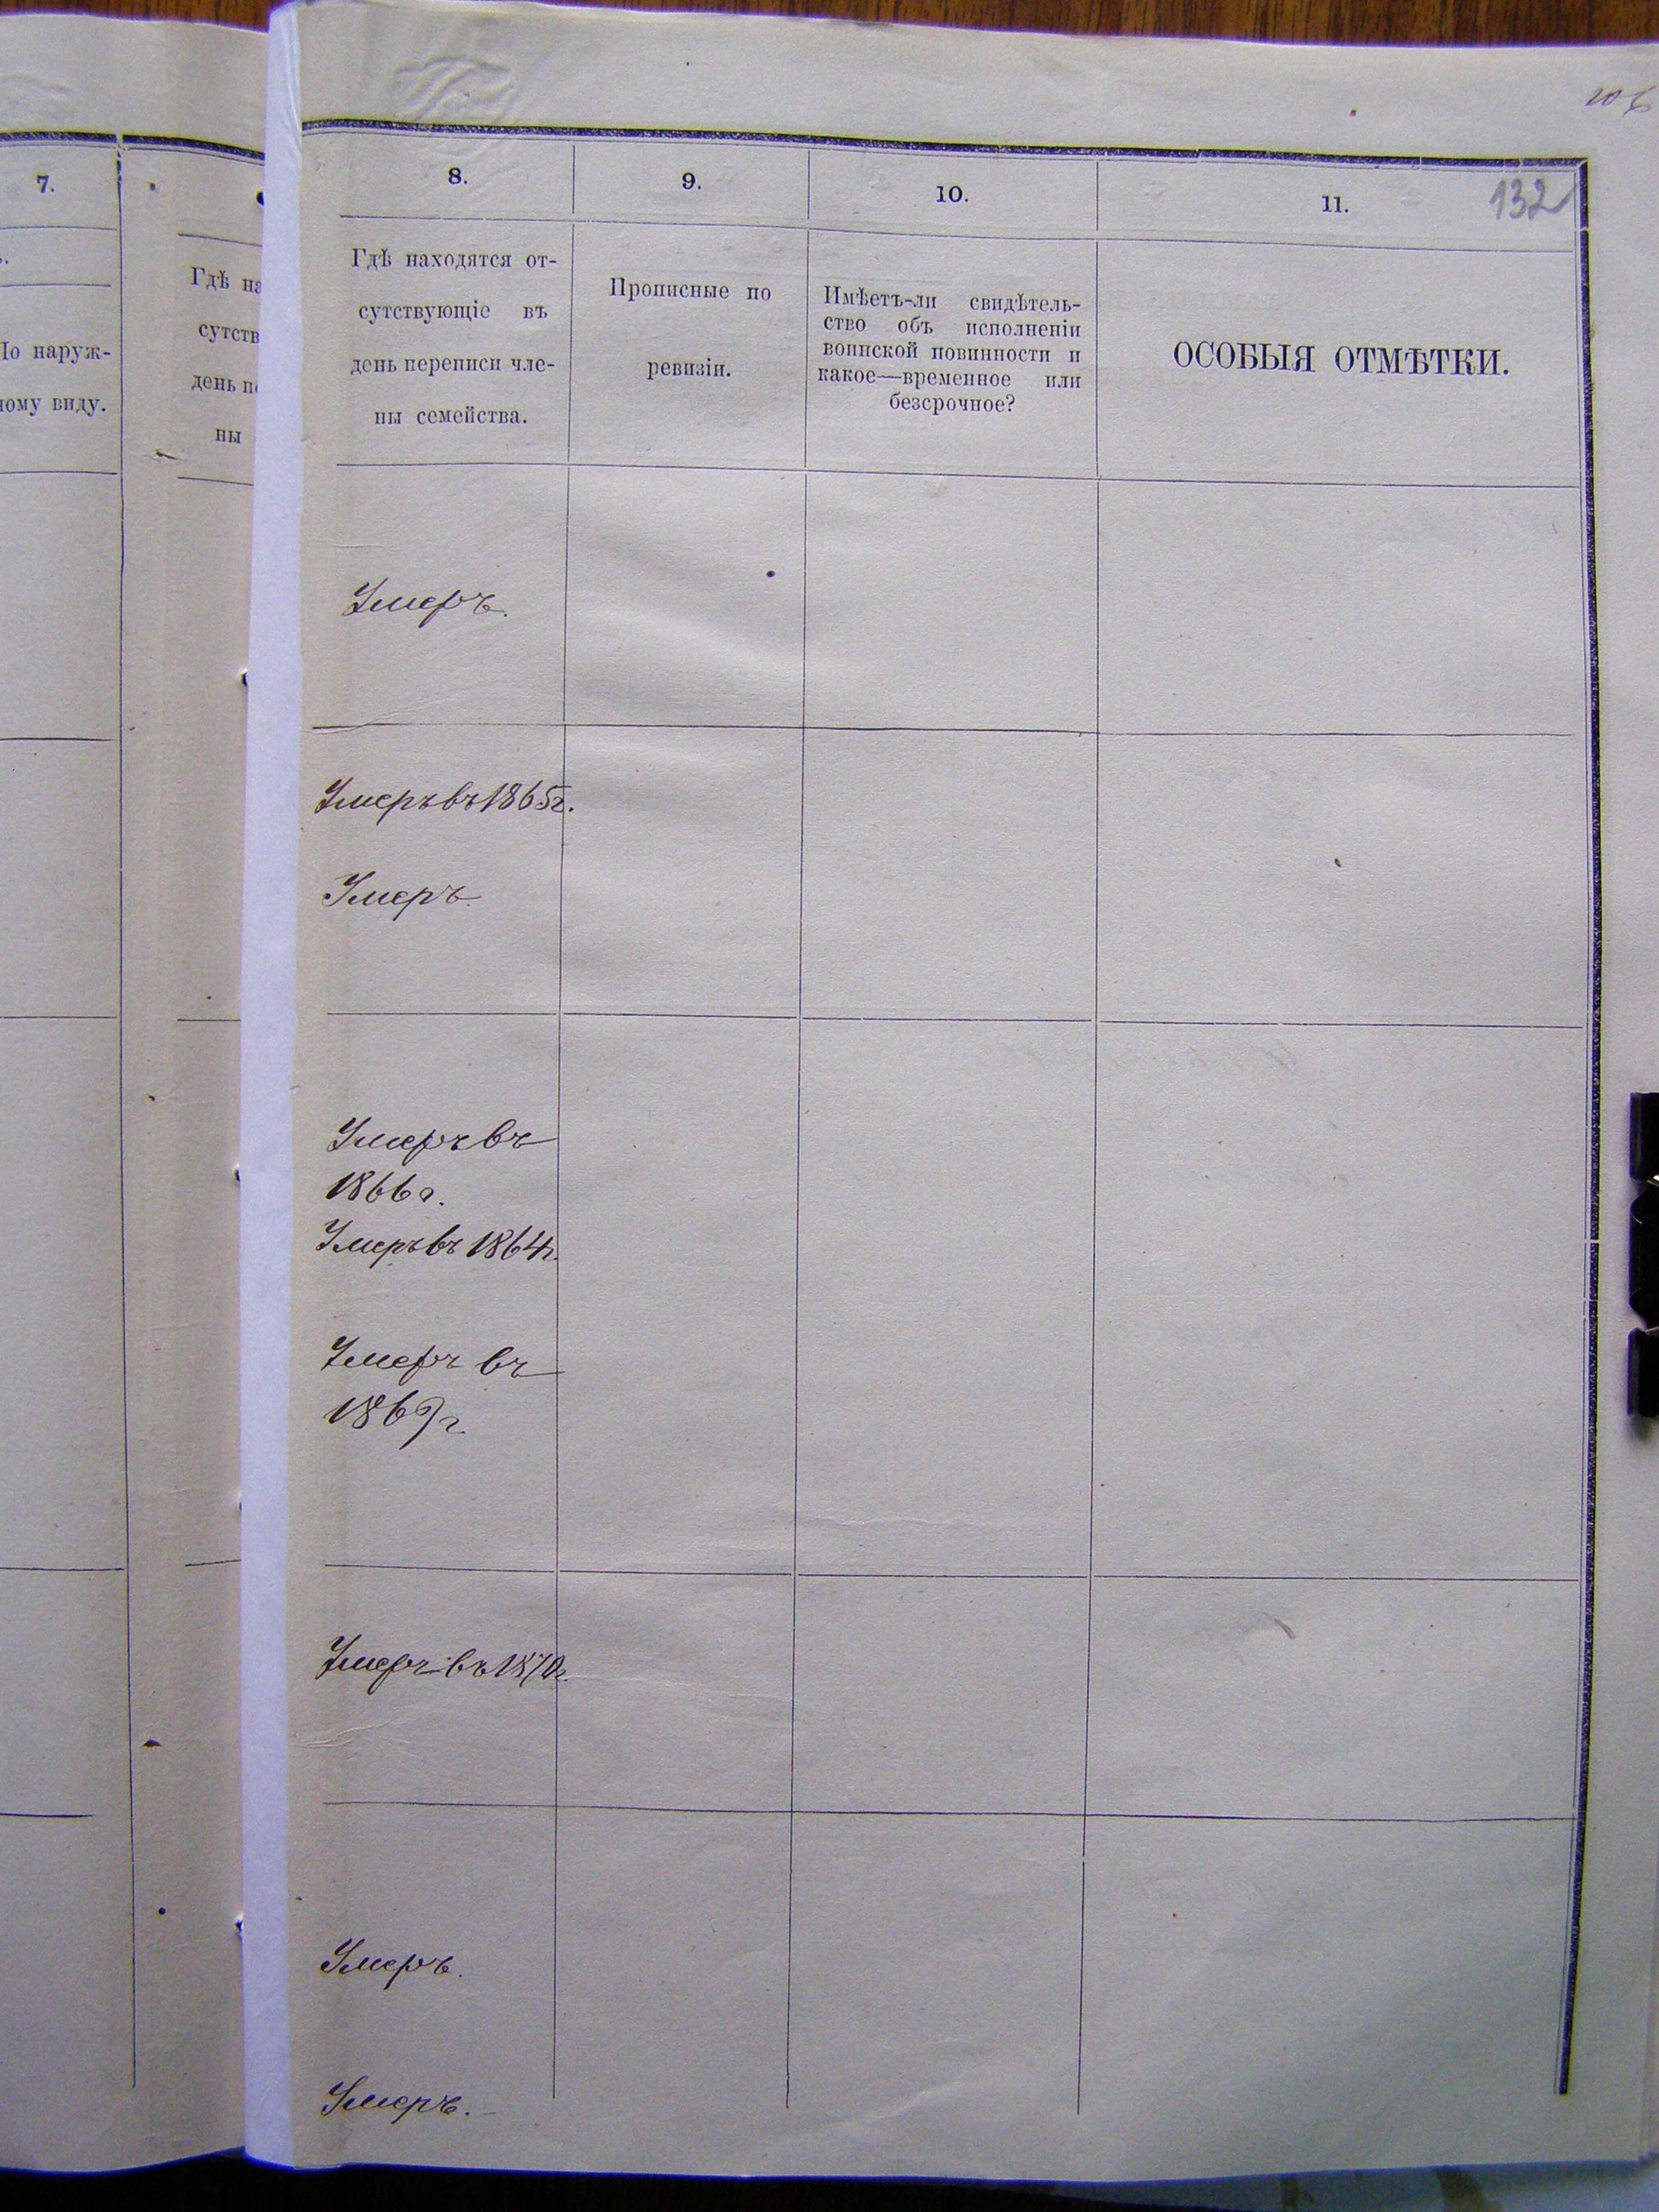 7.
По наруж-
ному виду.
Гдѣ на
сутств
день пе
ны
132
8.
9.
10.
11.
Гдѣ находятся от-
сутствующіе въ
день переписи чле-
ны семейства.
Прописные по
ревизіи.
Имѣетъ-ли свидѣтель-
ство объ исполненіи
воинской повинности и
какое—временное или
безсрочное?
ОСОБЫЯ ОТМѢТКИ.
Умеръ.
Умеръ въ 1865г.
Умеръ
Умеръ въ
1866г.
Умеръ въ 1864г.
Умеръ въ
1869г.
Умеръ въ 1870г.
Умеръ.
Умеръ.